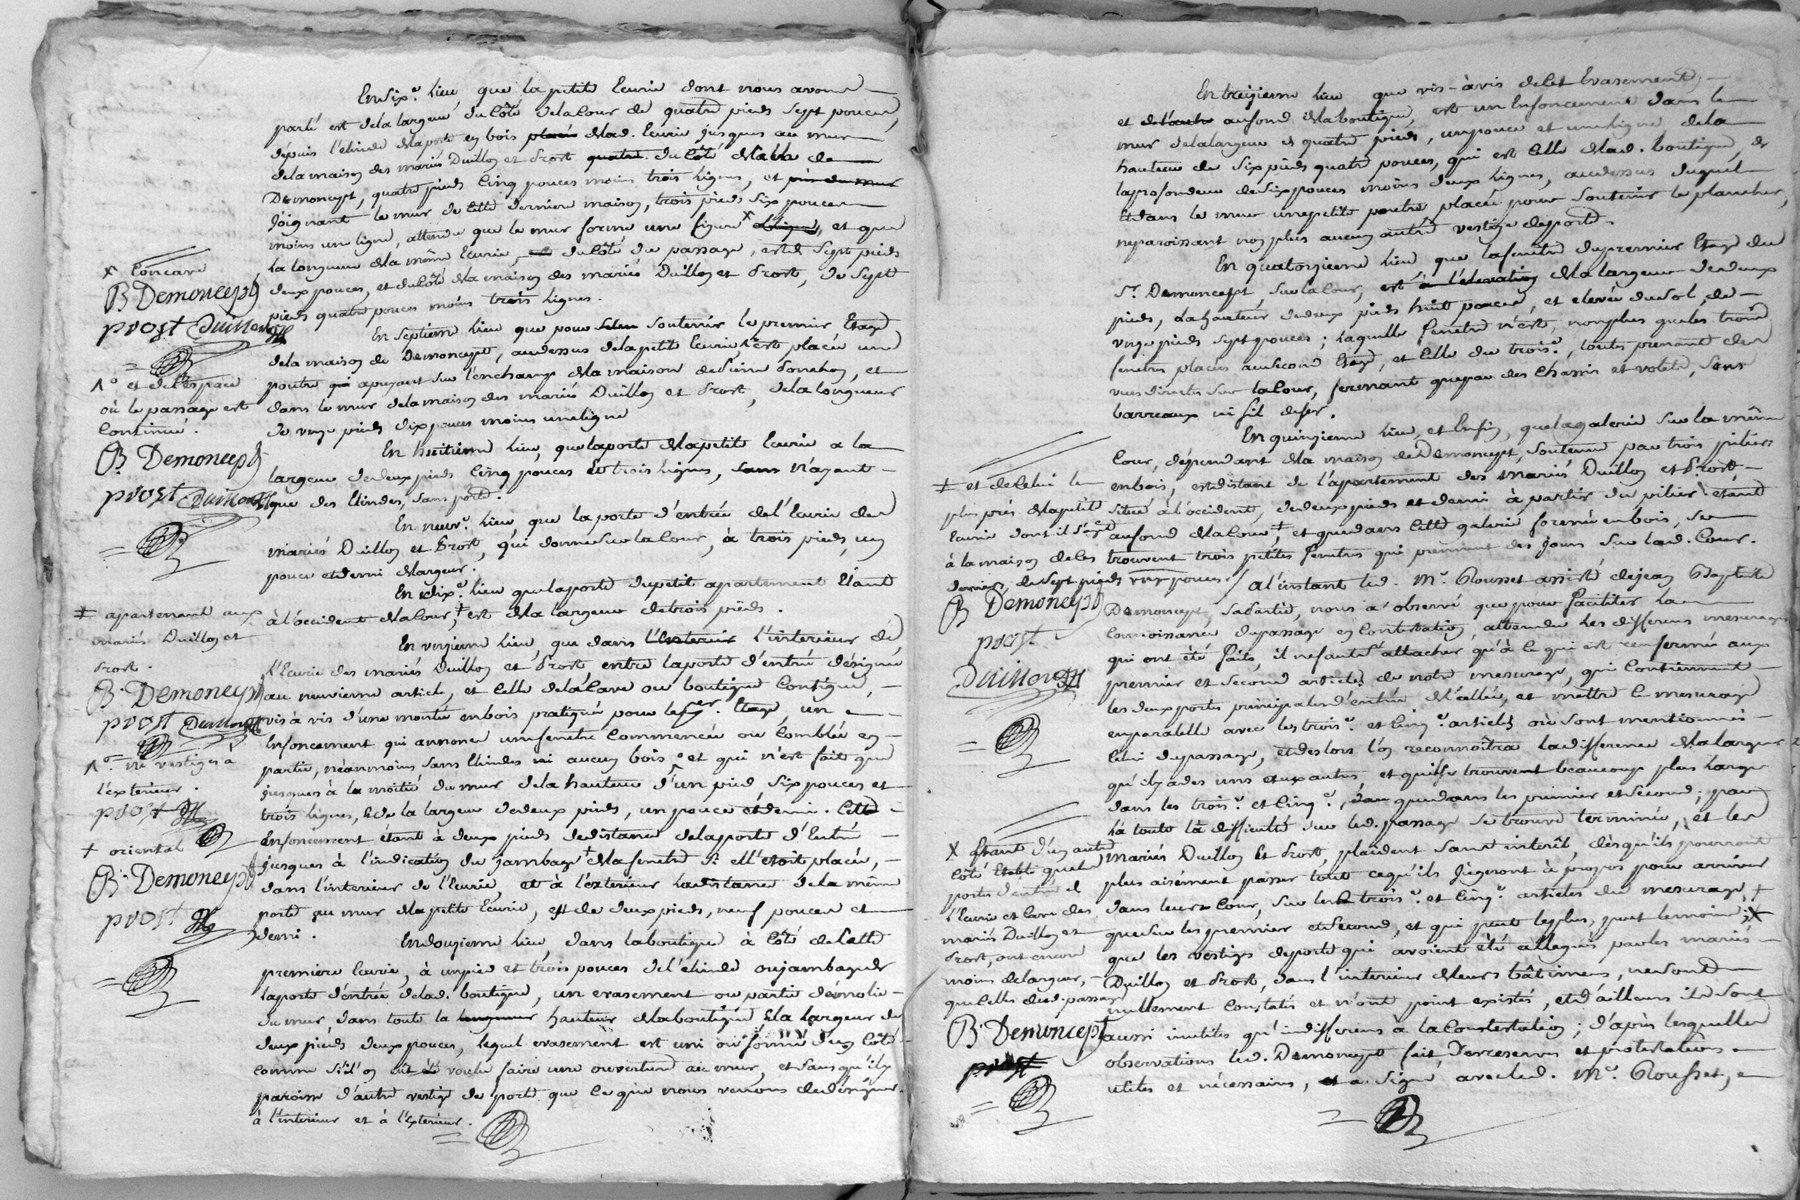 En six.e lieu que la petite Ecurie dont nous avons
parlé est de la largeur du côté de la Cour de quatre pieds sept pouces,
depuis l'élinde de la porte en bois de lad. Ecurie jusques au mur
de la maison des mariés Duillon et Prost du côté de la de
Demoncept, quatre pieds cinq pouces moins trois lignes, et
Joignant le mur de cette derniere maison, trois pieds six pouces
moins un ligne, attendu que le mur forme une figure et que
la longueur de la meme Ecurie, du côté du passage, est de sept pieds
deux pouces, et du côté de la maison des mariés Duillon et Prost, de sept
pieds quatre pouces moins trois lignes.
En septieme lieu que pour soutenir le premier Etage
de la maison de Demoncept, au dessus de la petite Ecurie est placée une
poutre qui apuyant sur l'enchamp de la maison de Pierre et
dans le mur de la maison des mariés Duillon et Prost, de la longueur
de onze pieds dix pouces moins une ligne
En huitieme lieu, que la porte de la petite Ecurie a la
largeur de deux pieds cinq pouces et trois lignes, sans n'ayant
que des élindes, sans porte.
En neuv.e lieu que la porte d'entrée de l'Ecurie des
mariés Duillon et Prost, qui donne sur la Cour, à trois pieds, un
pouce et demi de largeur.
En dix.e lieu que la porte du petit apartement Etant
à l'occident de la Cour, ‡ est de la largeur de trois pieds.
En onzieme lieu, que dans l'interieur l'interieur de
l'Ecurie des mariés Duillon et Prost entre la porte d'entrée désignée
au neuvieme article, et celle de la Cave ou boutique contiguë,
vis à vis d'une montée en bois pratiquée pour le 1er. Etage un
Enfoncement qui annonce une fenetre commencée ou comblée en
partie, néanmoins sans élindes ni aucun bois et qui n'est fait que
jusques à la moitié du mur de la hauteur d'un pied six pouces et
trois lignes, et de la largeur de deux pieds, un pouce et demi. Cette
Enfoncement étant à deux pieds de distance de la porte d'Entrée
jusques à l'indication du jambage † de la fenetre si elle etoit placée,
dans l'interieur de l'Ecurie et à l'exterieur la distance de la même
porte au mur de la petite Ecurie, est de deux pieds, neuf pouces et
demi.
En douzieme lieu, dans la boutique à côté de cette
premiere Ecurie, à un pied et trois pouces de l'elinde ou jambage de
la porte d'entrée de lad. boutique, un evasement ou partie démolie
du mur, dans toute la longueur hauteur de la boutique de la largeur de
deux pieds deux pouces, lequel evasement est uni ou formé d'un côté
comme si l'on eut voulu faire une ouverture au mur, et sans qu'il y
paroisse d'autre vestige de porte que ce que nous venons de désigner
à l'interieur et à l'exterieur.
x Concave
B. Demoncept
prost Duillon
^o et de l'espace
où le passage est
continué.
B. Demoncept
prost Duillon
‡ apartenant aux
mariés Duillon et
Prost.
B. Demoncept
prost Duillon
^o ni vestiges à
l'exterieur.
prost
† oriental
B. Demoncept
prost
En treizieme lieu que vis-à-vis de cet Evasement,
et de l'autre au fond de la boutique, est un Enfoncement dans le
mur de la largeur de quatre pieds, un pouce et une ligne de la
hauteur de six pieds quatre pouces, qui est celle de lad. boutique, de
la profondeur de six pouces moins deux lignes, au dessus duquel
Et dans le mur une petite poutre placée pour soutenir le plancher,
ne paroissant non plus aucun autre vestige de porte.
En quatorzieme lieu que la fenetre du premier Etage du
Sr. Demoncept, sur la Cour, est à l'élévation de la largeur de deux
pieds, la hauteur de deux pieds huit pouces, et elevée du sol, de
onze pieds sept pouces; laquelle fenetre n'est, non plus que les trois
fenetres placées au second Etage, et celle du trois.e, toutes prenant des
vues directes sur la Cour, fermant que par des Chassis et volets, sans
barreaux ni fil de fer.
En quinzieme lieu, et Enfin, que la galerie sur la même
Cour, dépendant de la maison de Demoncept, soutenue par trois piliers
en bois, est distant de l'apartement des mariés Duillon et Prost
situé à l'occident, de deux pieds et demi à partir du pilier étant
au fond de la Cour ‡, et que dans cette galerie fermée en bois, se
trouvent trois petites fenetres qui prennent des jours sur lad. Cour.
A l'instant led. Me. Rousset assisté de jean Baptiste
Demoncept, sa partie, nous a observé que pour faciliter la
connoissance du passage en Contestation, attendu les differens mesurages
qui ont été faits, il ne faut s'attacher qu'à ce qui est renfermé aux
premier et second articles de notre mesurage, qui contiennent
les deux portes principales d'entrée de l'allée, et mettre ce mesurage
en paralelle avec les trois.e et cinq.e articles où sont mentionnés
celui du passage, et des lors l'on reconnoîtra la difference de la largeur
qu'il y a des uns et aux autres et qu'il se trouvent beaucoup plus large
dans les trois.e et cinq.e, que dans les premier et second; par
là toute la difficulté sur led. passage se trouve terminée, et les
mariés Duillon et Prost, plaident sans interêt, dès qu'ils pourront
plus aisément passer tout ce qu'ils jugeront à propos pour arriver
dans leur Cour, sur les trois.e et cinq.e articles du mesurage, †
que sur les premier et second, et qui peut le plus, peut le moins; x
que les vestiges de porte qui avoient été allegués par les mariés
Duillon et Prost, dans l'interieur de leurs bâtimens, ne sont
nullement constatés et n'ont point existés, et d'ailleurs ils sont
aussi inutiles qu'indifferens à la Contestation; d'après lesquelles
observations led. Demoncept fait reserves et protestations
utiles et nécessaires, et a signé avec led. Me. Rousset,
‡ et de celui le
plus près de la petite
Ecurie dont il s'agit
à la maison de ces
derniers, de sept pieds onze pouces
B. Demoncept
prost
Duillon
x étant d'un autre
côté établi que les
portes d'entrée de
l'Ecurie et Cave des
mariés Duillon et
Prost, ont encore
moins de largeur,
que celles dud. passage
B. Demoncept
prost